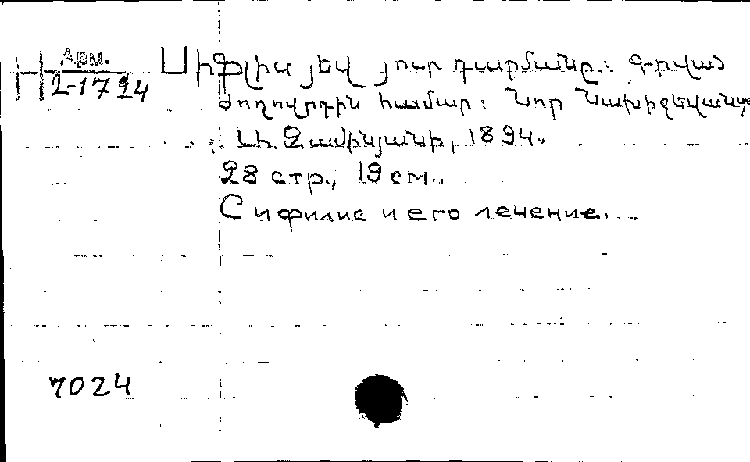 Арм.
2-1794
Սիֆլիս յեվ յուր դարմանը: Գրված
ժողովրդին համար: Նոր Նախիջեվանը
1894.
28 стр., 19 см.
Сифилис и его лечение.
7024